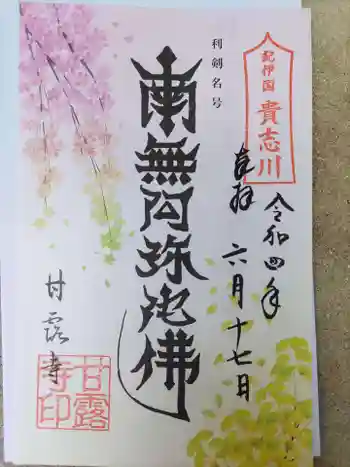 紀伊国
貴志川
奉拝
令和四年
六月十七日
利剣名号
南無阿弥陀佛
甘露寺
甘露
寺印